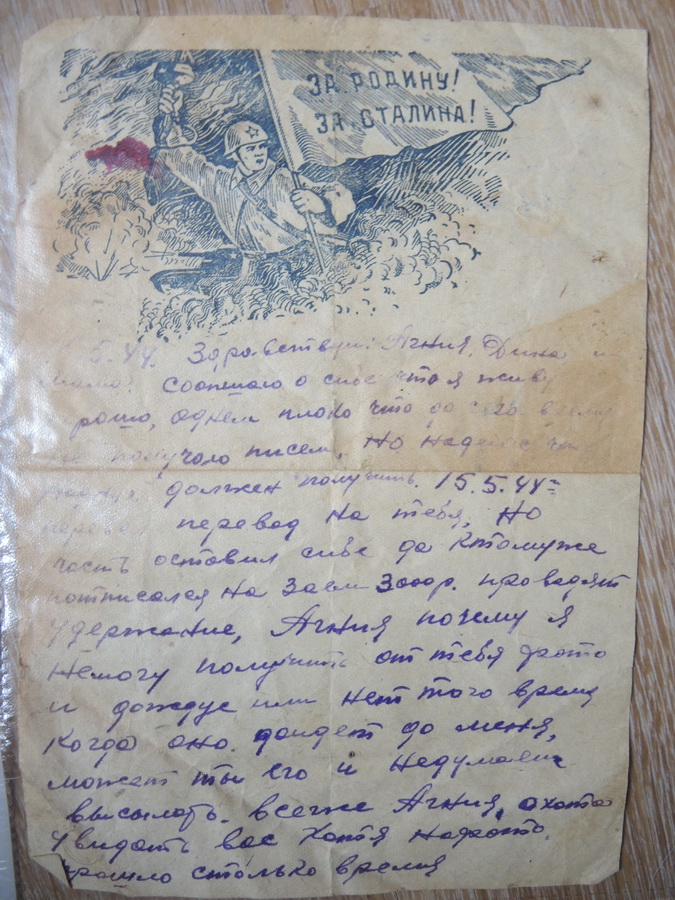 ЗА РОДИНУ!
ЗА СТАЛИНА!
5.44. Здравствуй: Агния, Дина и
мама! сообщаю о себе что я живу
рошо, однем плохо что до сего время
не получаю писем, но надеюсь что
должен получить. 15.5.44г
перевод на тебя, но
часть оставил себе да ктомуже
потписался на заем 300ор. проводят
удержание, Агния почему я
немогу получить от тебя фото
и дождусь или нет того время
когда оно дойдет до меня,
может ты его и недумаеш
высылать. всеже Агния, охота
увидать вас хотя нафото.
прошло столько время